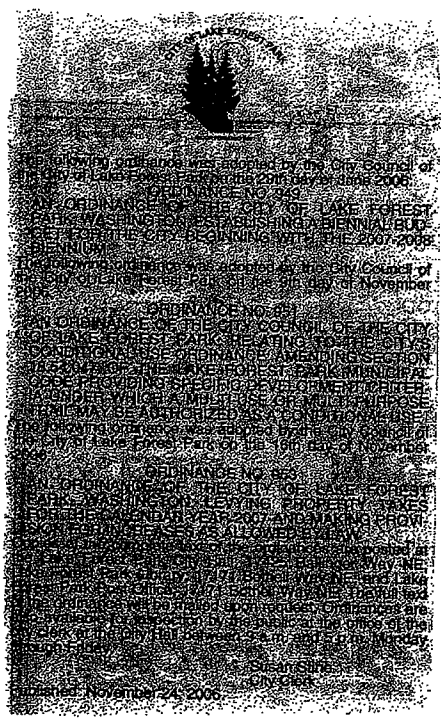 CITY OF LAKE FOREST PARK
The following ordinance was adopted by the City Council of
the City of Lake Forest Park on the 29th day of June 2006.
ORDINANCE NO. 949
AN ORDINANCE OF THE CITY OF LAKE FOREST
PARK, WASHINGTON, ESTABLISHING A BIENNIAL BUD-
GET FOR THE CITY BEGINNING WITH THE 2007-2008
BIENNIUM
The following ordinance was adopted by the City Council of
the City of Lake Forest Park on the 9th day of November
ORDINANCE NO.
AN ORDINANCE OF THE CITY COUNCIL OF THE CITY
OF LAKE FOREST PARK, RELATING TO THE CITY'S
CONDITIONAL USE ORDINANCE, AMENDING SECTION
OF THE LAKE FOREST PARK MUNICIPAL
CODE PROVIDING SPECIFIC DEVELOPMENT CRITER-
IA UNDER WHICH A MULTI USE OR MULTI PURPOSE
TRAIL MAY BE AUTHORIZED AS A CONDITIONAL USE
The following ordinance was adopted by the City Council of
the City of Lake Forest Park on the 16th day of November
2006
ORDINANCE NO.
AN ORDINANCE OF THE CITY OF LAKE FOREST
PARK, WASHINGTON, LEVYING PROPERTY TAXES
FOR THE CALENDAR YEAR 2007 AND MAKING PROVI-
SION FOR INCREASES AS ALLOWED BY LAW
of the ordinances are posted at
City Hall, Ballinger Way NE,
Park Library, 17171 Bothell Way NE, and Lake
Post Office, 17171 Bothell Way NE. The full text
of the ordinance will be mailed upon request. Ordinances are
also available for inspection by the public at the office of the
City Clerk at the City Hall between 9 a.m. and 5 p.m. Monday
through Friday
Susan Stine
City Clerk
Published: November 24, 2006